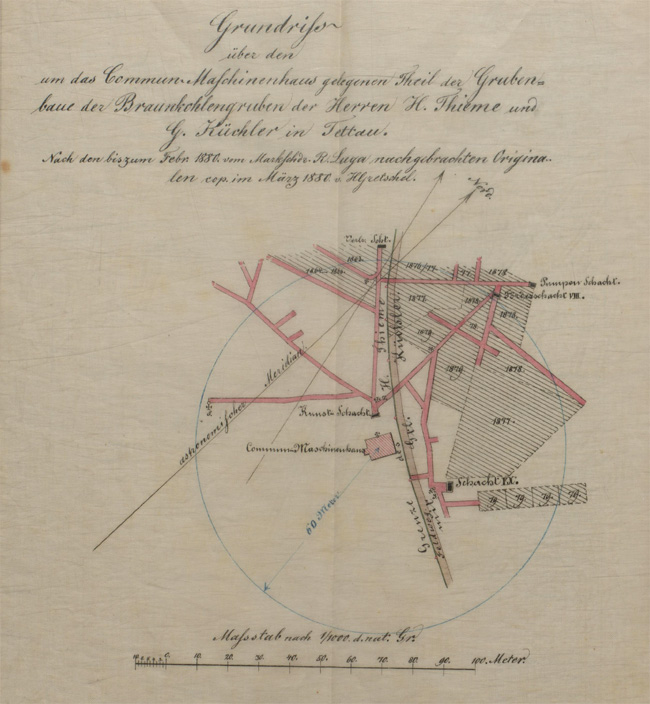 Grundriss
über den
um das Commun-Maschinenhaus gelegenen Theil der Gruben=
baue der Braunkohlengruben der Herren H. Thieme und
G. Küchler in Tettau.
Nach den bis zum Febr. 1880. vom Markschdr. R. Luga nachgebrachten Origina-
len cop. im März 1880. v. HGretschel.
Nord.
Verb. Scht.
1876/77.
1878
Pumpen Schacht.
Förderschacht VIII.
1877.
1878.
1879.
1878.
1877.
H. Thieme
Küchler
astronomischer Meridian
Kunst-Schacht
Commun-Maschinenhaus
Schacht IX.
79. 79. 79. 79.
Grenze des Grl.
60 Meter
Massstab nach 1/1000. d. nat. Gr.
10 0. 10. 20. 30. 40. 50. 60. 70. 80. 90. 100. Meter.